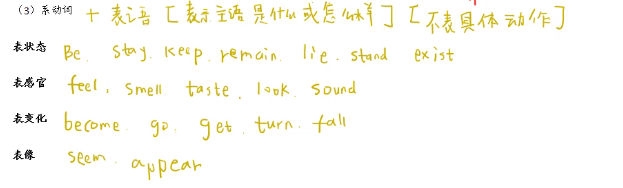 (3) 系动词 + 表语 [表示主语是什么或怎么样] [不表具体动作]
表状态 Be. stay. keep. remain. lie. stand exist
表感官 feel, smell taste. look. sound
表变化 become. go. get. turn. fall
表像 seem. appear